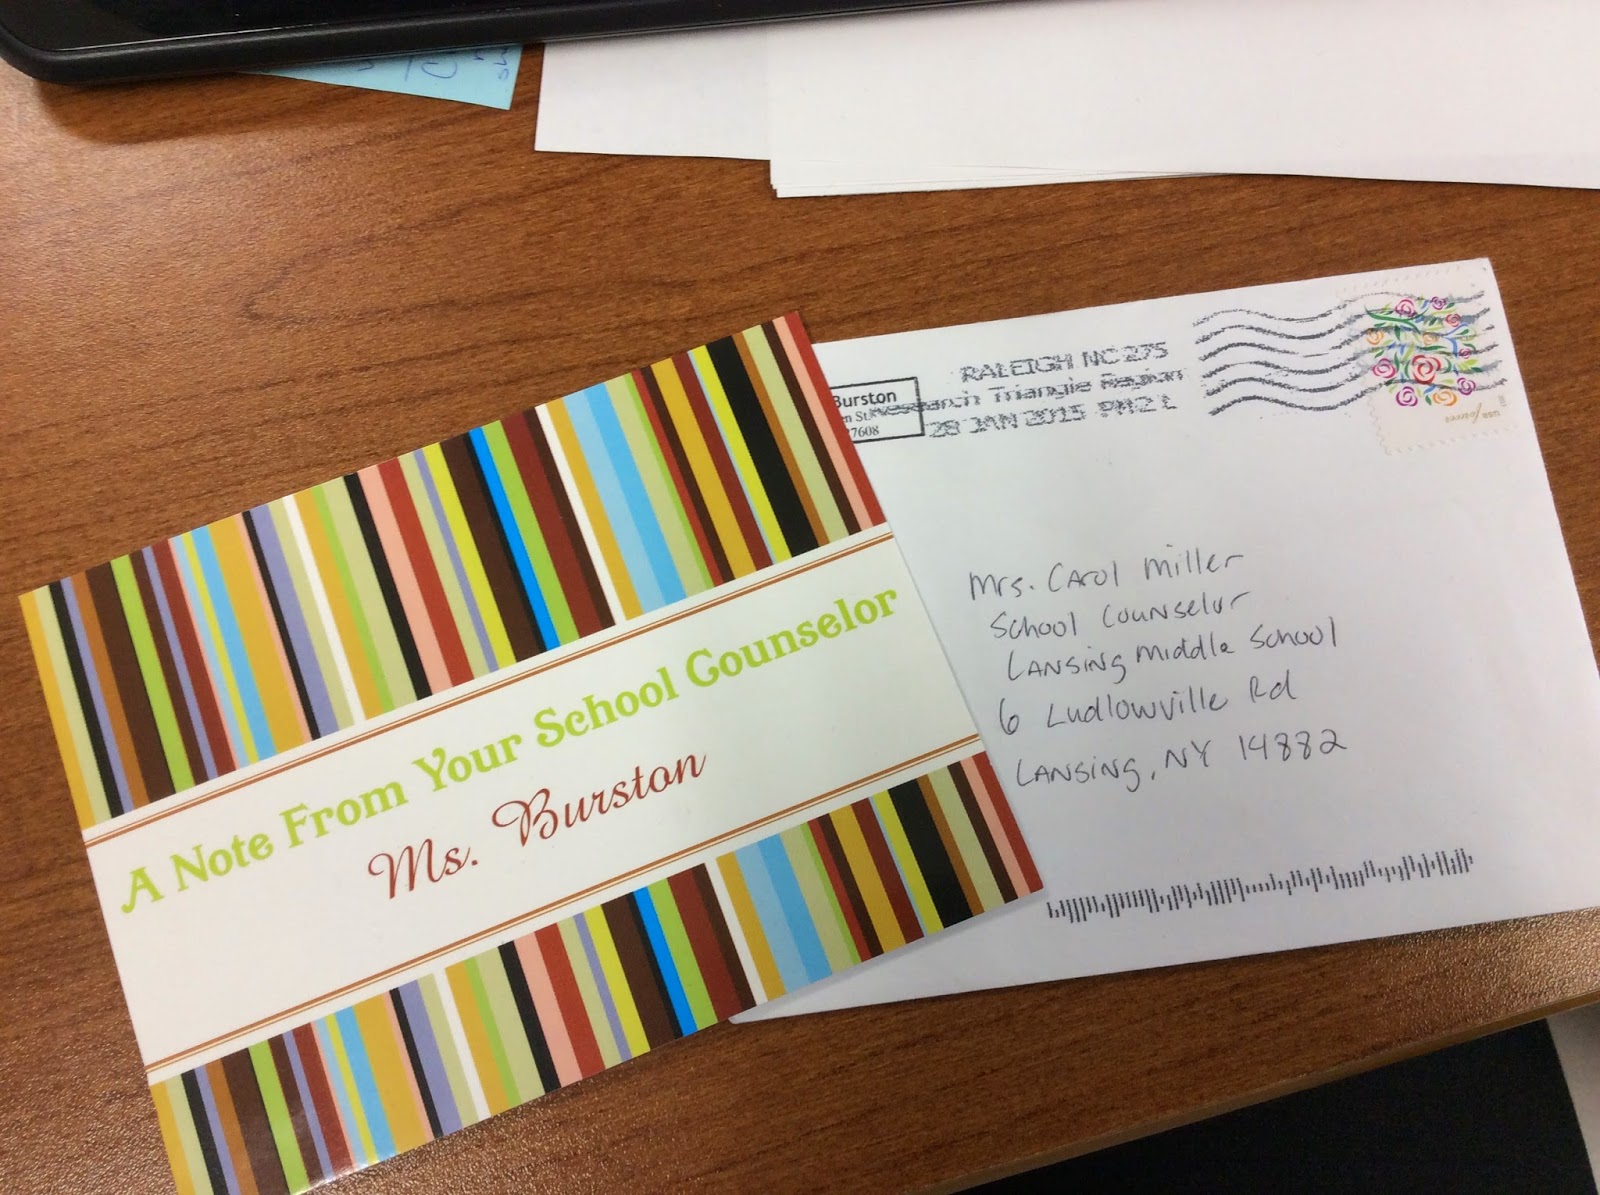 A Note From Your School Counselor
Ms. Burston
Burston
27608
RALEIGH NC 275
Research Triangle Region
28 JAN 2015 PM 2 L
USA forever
Mrs. Carol Miller
School Counselor
Lansing Middle School
6 Ludlowville Rd
Lansing, NY 14882